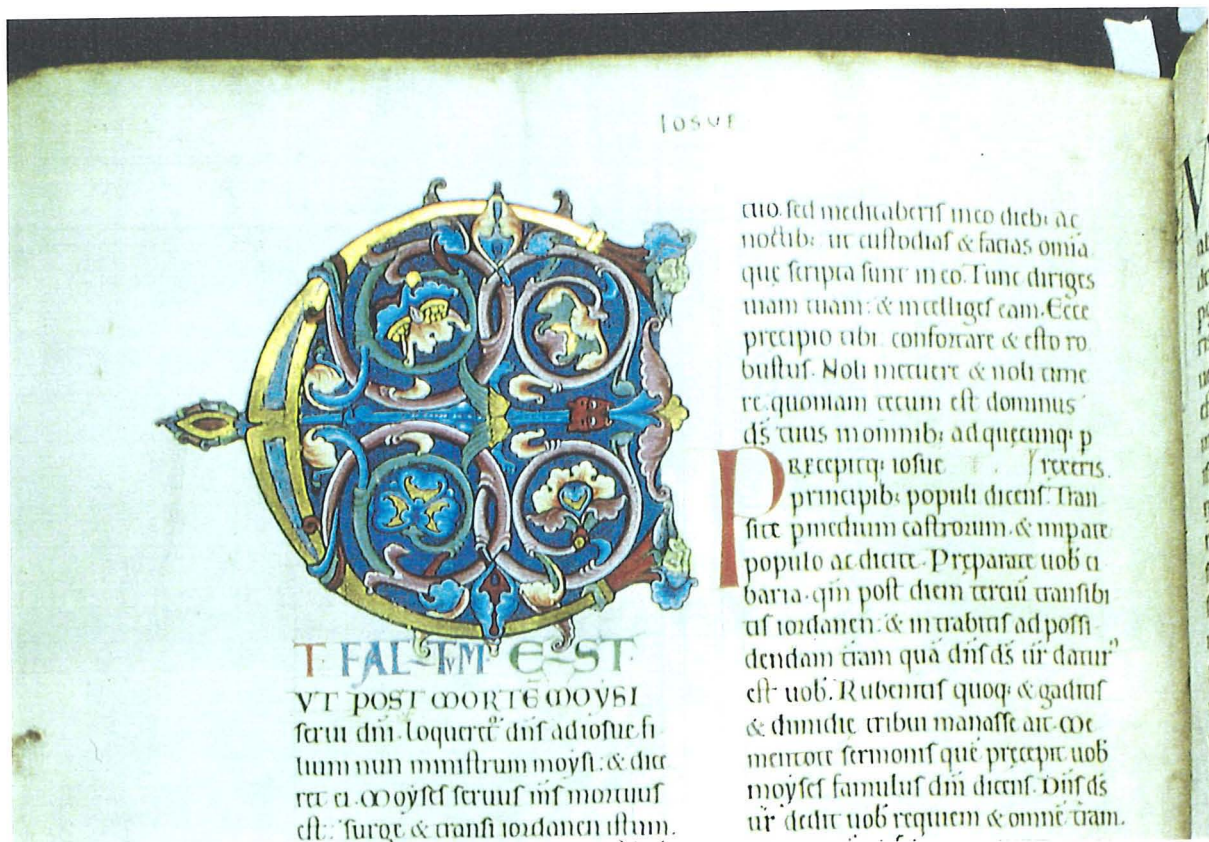 IOSUE
E
T FAC-TVM E-ST
VT POST MORTĒ MOYSI
serui dñi. loqueret᷑ dñs ad iosue fi
lium nun ministrum moysi: & dice
ret ei. Moyses seruus m̄s mortuus
est: surge & transi iordanen istum.
tuo. sed meditaberis in eo dieb; ac
noctib: ut custodias & facias om̄ia
que scripta sunt in eo. Tunc diriges
uiam tuam: & intelliges eam. Ecce
precipio tibi. confortare & esto ro
bustus. Noli metuere & noli time
re. quoniam tecum est dominus
d̄s tuus in omnib; ad quęcumq; p
PRęcepitq; iosue rexeris.
principib; populi dicens. Tran
site p medium castrorum. & impate
populo ac dicite. Pręparate uob ci
baria. qm̄ post diem terciū transibi
tis iordanen: & intrabitis ad possi
dendam t̄ram quā dn̄s d̄s ūr datur᷒
est uob. Rubenitis quoq; & gaditis
& dimidię tribui manasse ait. Me
mentote sermonis quē pręcepit uob
moyses famulus dn̄i dicens. Dn̄s d̄s
ūr dedit uob requiem & omnē t̄ram.